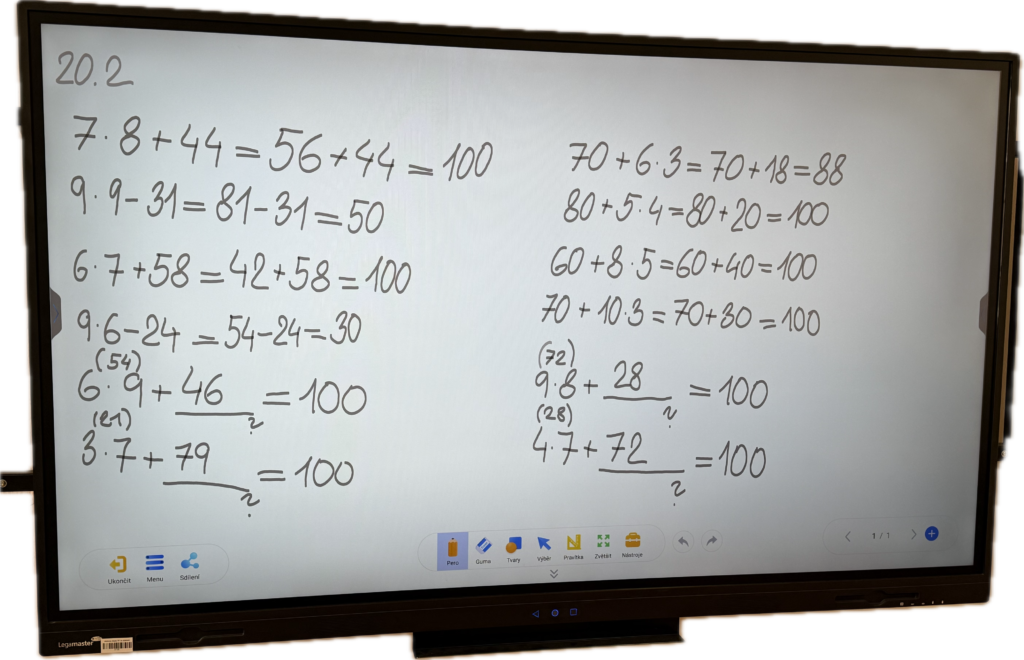 20.2
7·8+44=56+44=100
9·9-31=81-31=50
6·7+58=42+58=100
9·6-24=54-24=30
(54)
6·9+46=100
?
(21)
3·7+79=100
?
70+6·3=70+18=88
80+5·4=80+20=100
60+8·5=60+40=100
70+10·3=70+30=100
(72)
9·8+28=100
?
(28)
4·7+72=100
?
Ukončit Menu Sdílení
Pero Guma Tvary Výběr Pravítka Zvětšit Nástroje
1 / 1
Legamaster